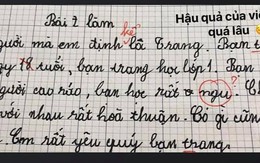 Hậu quả của việ
quá lâu
Bài 7 làm
kể
gười mà em định là Trang. Bạn t
ay 18 tuổi, bạn trang học lớp 1. Bạn
gười cao ráo, bạn học rất ngu. C
với nhau rất hoà thuận. Có gì cũng
. Em rất yêu quý bạn trang.